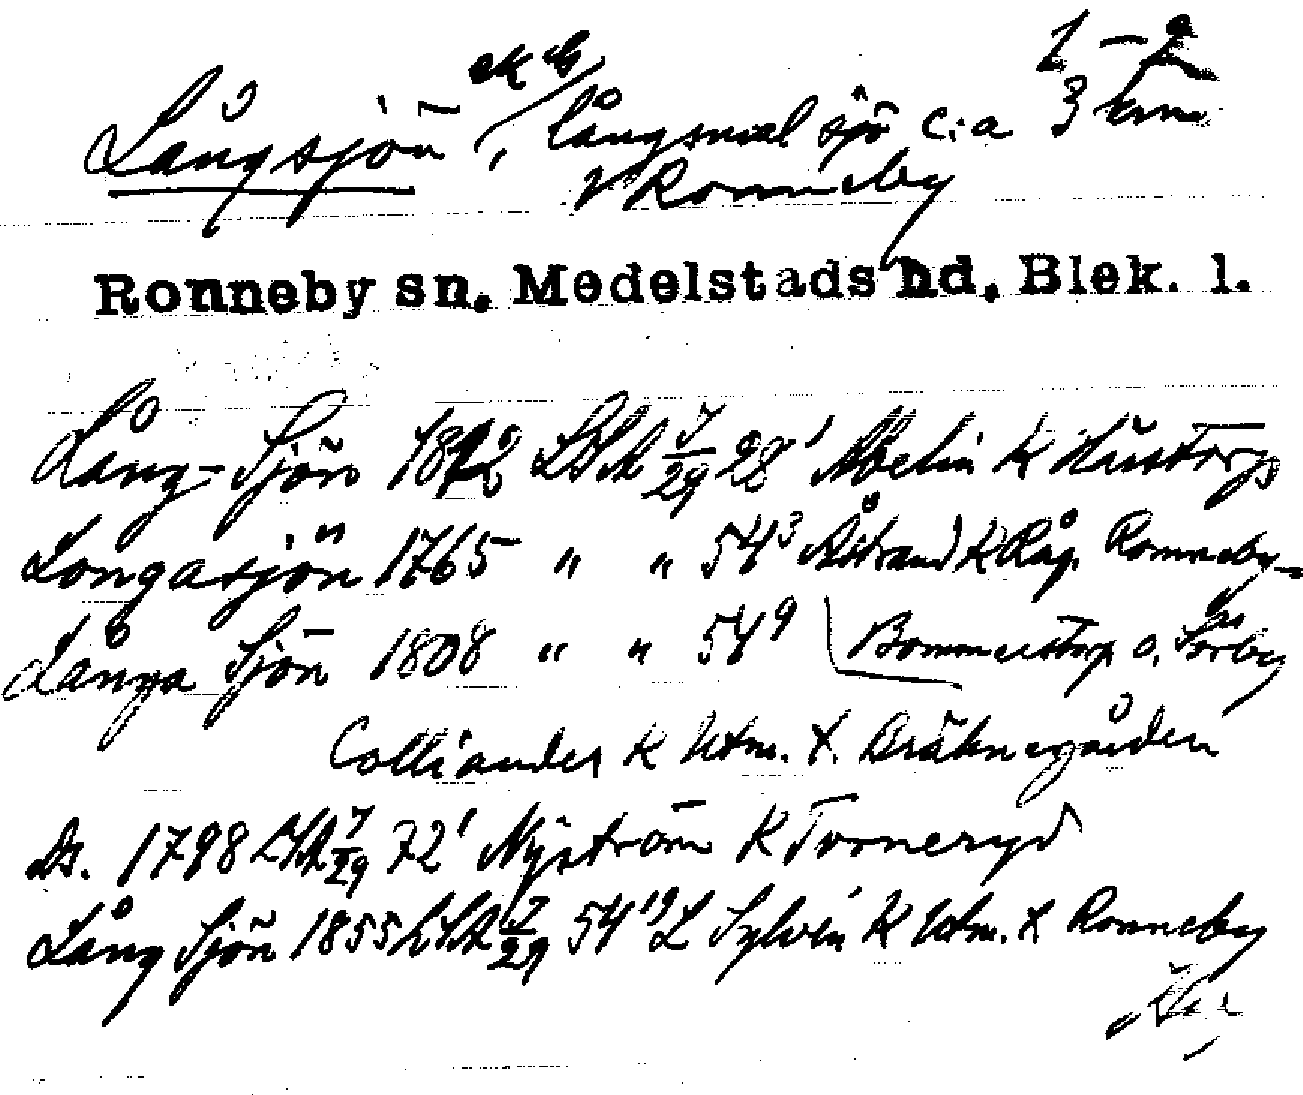 1-2
Långsjön, ek bl långsmal sjö c:a 3 km
V Ronneby
Ronneby sn. Medelstads hd, Blek. l.
Lång-Sjön 1812 LSA 7/29 28¹ Abelin K Hustorp
Longasjön 1765 " " 54³ Åstrand K Råg. Ronneby-
Långa Sjön 1808 " " 54⁹ Bommerstorp o. Sörby
Colliander K Utm. t. Bräknegården
Ds. 1798 LSA 7/29 72¹ Nyström K Torneryd
Lång Sjön 1855 LSA 7/29 54¹⁹ L Sylvén K Utm. t Ronneby